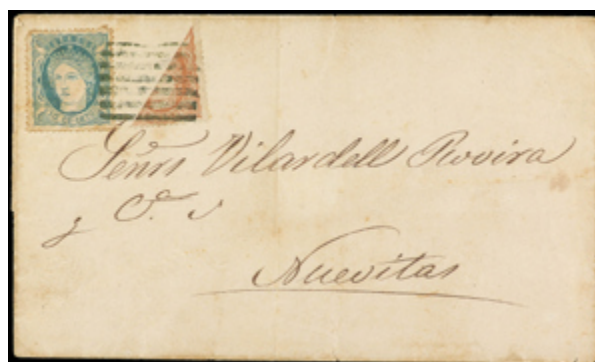 Señrs Vilardell Rovira
y Cª
Nuevitas